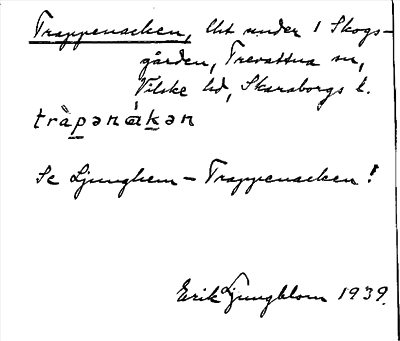 Trappenacken, Ust under 1 Skogs-
gården, Trevattna sn,
Vilske hd, Skaraborgs l.
tràpənákən
Se Ljunghem – Trappenacken!
Erik Ljungblom 1939.